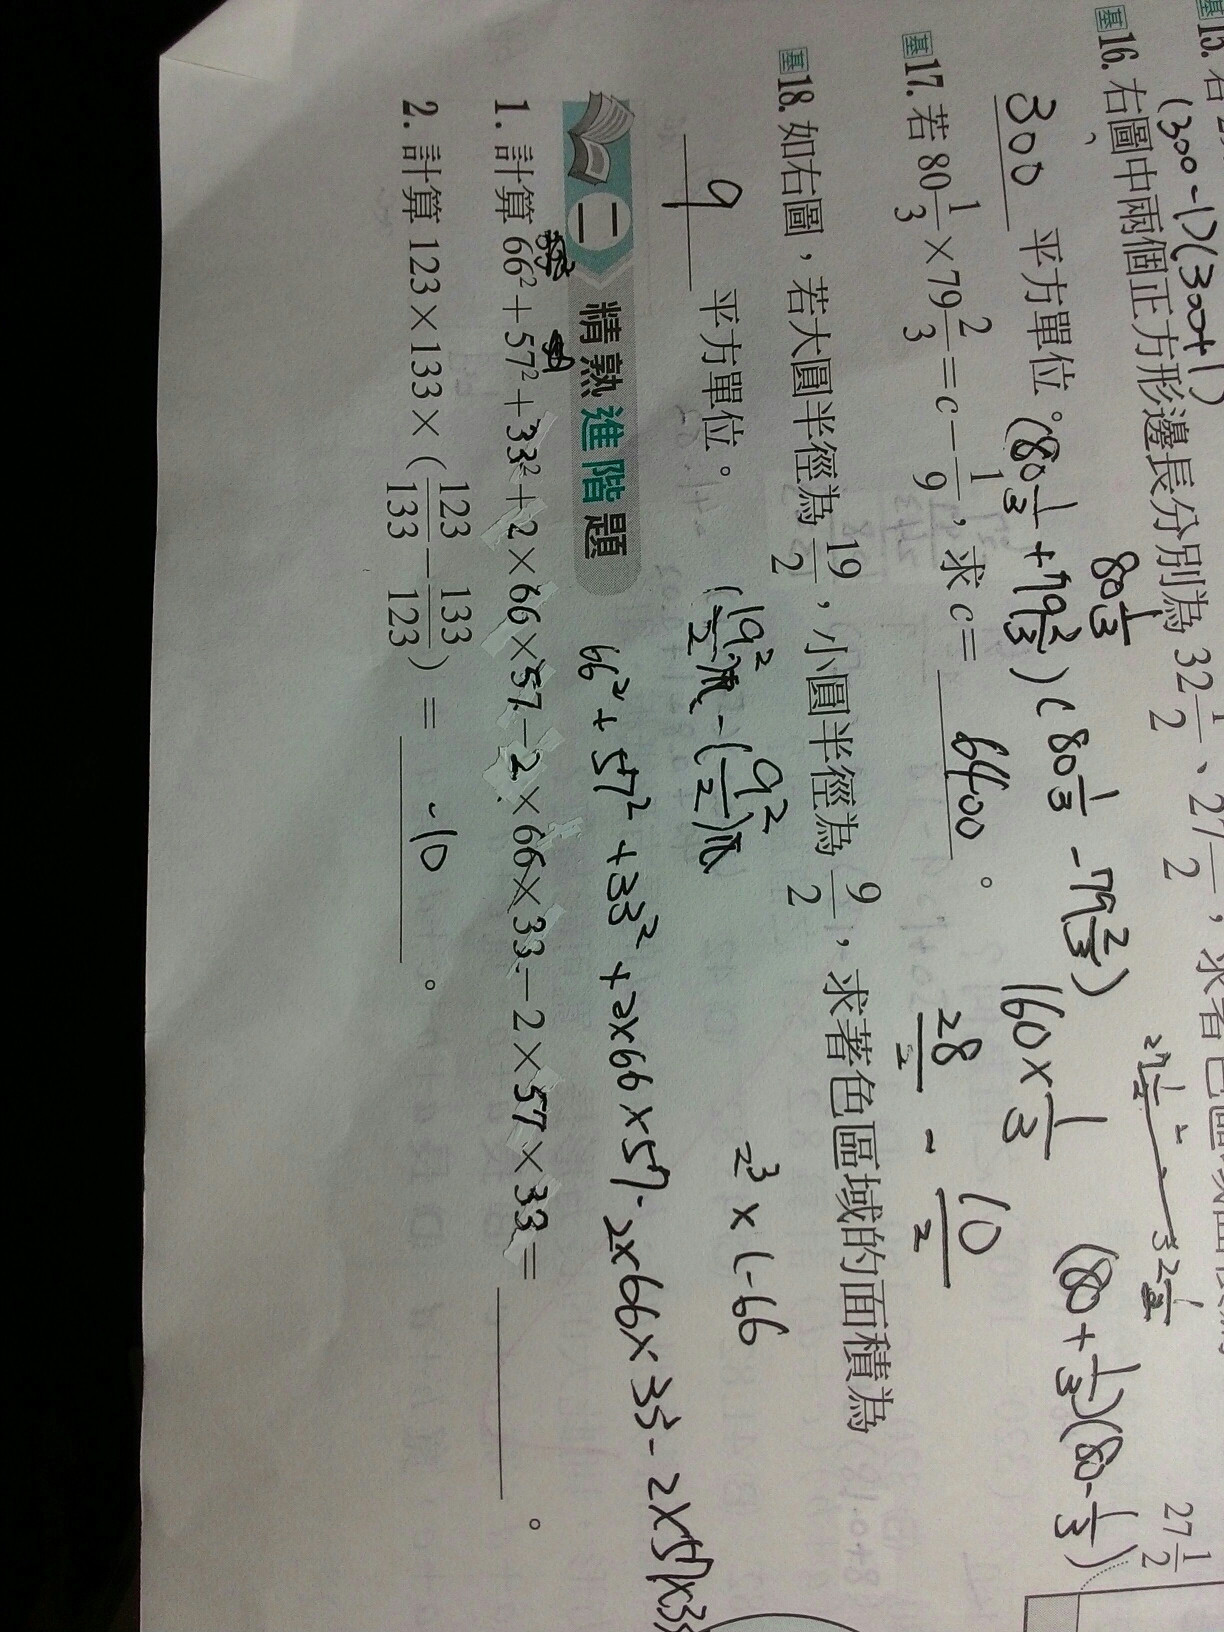 基16. 右圖中兩個正方形邊長分別為 32 1/2、27 1/2，求著色區域面積為
(300-1)(300+1)
80 1/3
27 1/2
300 平方單位。
(80 1/3 + 79 2/3)(80 1/3 - 79 2/3)
160 × 1/3
(80 + 1/3)(80 - 1/3)
基17. 若 80 1/3 × 79 2/3 = c - 1/9，求 c = 6400 。
28/2 - 10/2
基18. 如右圖，若大圓半徑為 19/2，小圓半徑為 9/2，求著色區域的面積為
9 平方單位。
(19/2)²π - (9/2)²π
2³ × (-66
二 精熟進階題
66² + 57² + 33² + 2×66×57 - 2×66×33 - 2×57×33
1. 計算 66² + 57² + 33² + 2 × 66 × 57 - 2 × 66 × 33 - 2 × 57 × 33 = 。
2. 計算 123 × 133 × (123/133 - 133/123) = -10 。